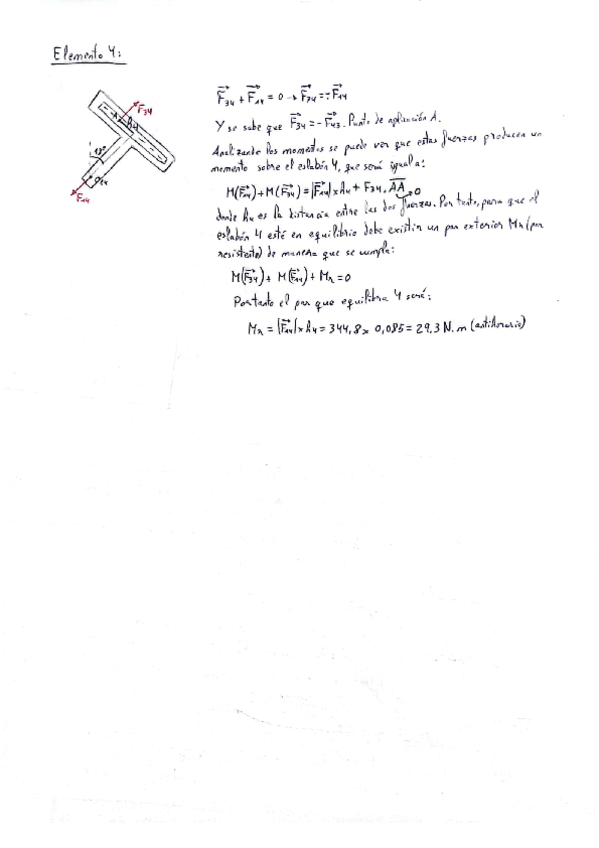 Elemento 4:
F34
h4
45°
O14
F14
F34 + F14 = 0 → F34 = -F14
Y se sabe que F34 = -F43. Punto de aplicación A.
Analizando los momentos se puede ver que estas fuerzas producen un
momento sobre el eslabón 4, que será igual a:
M(F14) + M(F34) = |F14| x h4 + F34 . AA → 0
donde h4 es la distancia entre las dos fuerzas. Por tanto, para que el
eslabón 4 esté en equilibrio debe existir un par exterior Mr (par
resistente) de manera que se cumpla:
M(F34) + M(F14) + Mr = 0
Por tanto el par que equilibra 4 será:
Mr = |F14| x h4 = 344,8 x 0,085 = 29,3 N.m (antihorario)